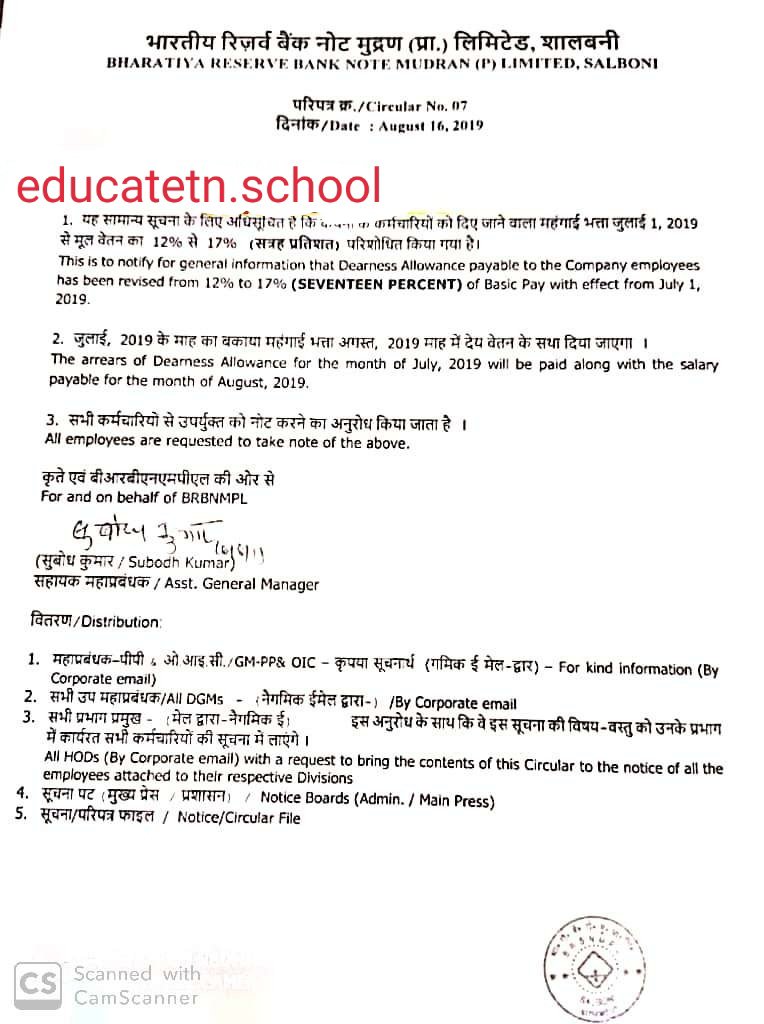 भारतीय रिज़र्व बैंक नोट मुद्रण (प्रा.) लिमिटेड, शालबनी
BHARATIYA RESERVE BANK NOTE MUDRAN (P) LIMITED, SALBONI
परिपत्र क्र./Circular No. 07
दिनांक/Date : August 16, 2019
educatetn.school
1. यह सामान्य सूचना के लिए अधिसूचित है कि के कर्मचारियों को दिए जाने वाला महंगाई भत्ता जुलाई 1, 2019
से मूल वेतन का 12% से 17% (सत्रह प्रतिशत) परिशोधित किया गया है।
This is to notify for general information that Dearness Allowance payable to the Company employees
has been revised from 12% to 17% (SEVENTEEN PERCENT) of Basic Pay with effect from July 1,
2019.
2. जुलाई, 2019 के माह का बकाया महंगाई भत्ता अगस्त, 2019 माह में देय वेतन के सथा दिया जाएगा ।
The arrears of Dearness Allowance for the month of July, 2019 will be paid along with the salary
payable for the month of August, 2019.
3. सभी कर्मचारियो से उपर्युक्त को नोट करने का अनुरोध किया जाता है ।
All employees are requested to take note of the above.
कृते एवं बीआरबीएनएमपीएल की ओर से
For and on behalf of BRBNMPL
सुबोध कुमार
(सुबोध कुमार / Subodh Kumar)
सहायक महाप्रबंधक / Asst. General Manager
वितरण/Distribution:
1. महाप्रबंधक-पीपी & ओ.आइ.सी./GM-PP& OIC – कृपया सूचनार्थ (गमिक ई मेल-द्वार) – For kind information (By
Corporate email)
2. सभी उप महाप्रबंधक/All DGMs - (नैगमिक ईमेल द्वारा-) /By Corporate email
3. सभी प्रभाग प्रमुख - (मेल द्वारा-नैगमिक ई) इस अनुरोध के साथ कि वे इस सूचना की विषय-वस्तु को उनके प्रभाग
में कार्यरत सभी कर्मचारियों की सूचना में लाएंगे ।
All HODs (By Corporate email) with a request to bring the contents of this Circular to the notice of all the
employees attached to their respective Divisions
4. सूचना पट (मुख्य प्रेस / प्रशासन) / Notice Boards (Admin. / Main Press)
5. सूचना/परिपत्र फाइल / Notice/Circular File
CS Scanned with
CamScanner